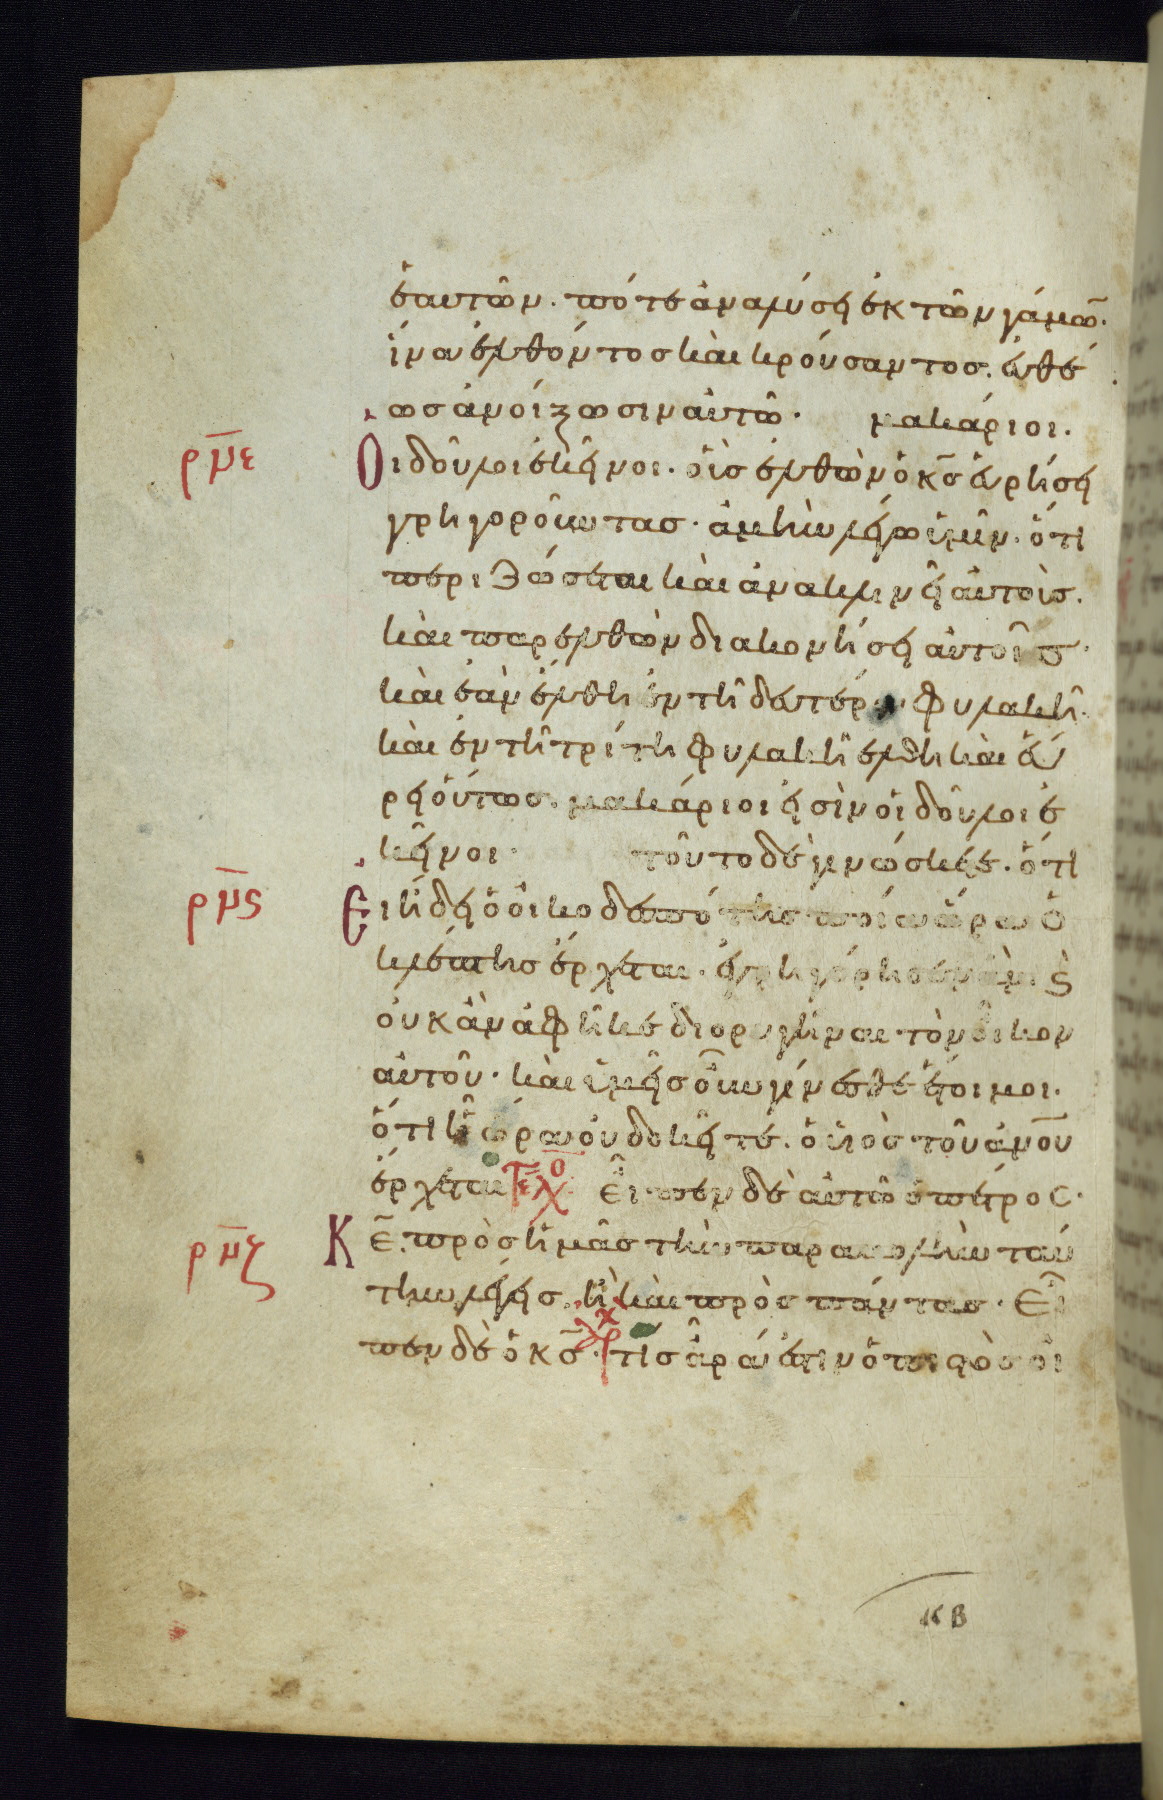 ἑαυτῶν. πότε ἀναλύσει ἐκ τῶν γάμω̄.
ἵνα ἐλθόντος καὶ κρούσαντος. εὐθέ
ως ἀνοίξωσιν αὐτῶ. μακάριοι.
ρμ̄ε Οἱ δοῦλοι ἐκεῖνοι. οἷς ἐλθὼν ὁ κ̄ς εὑρήσει
γρηγοροῦντας. ἀμὴν λέγω ὑμῖν. ὅτι
περιζώσεται καὶ ἀνακλινεῖ αὐτοὺς.
καὶ παρελθὼν διακονήσει αὐτοῖς.
καὶ ἐὰν ἔλθη ἐν τῆ δευτέρα φυλακῆ.
καὶ ἐν τῆ τρίτη φυλακῆ ἔλθη καὶ εὕ
ρει οὕτως. μακάριοι εἰσὶν οἱ δοῦλοι ἐ
κεῖνοι. τοῦτο δὲ γινώσκετε. ὅτι
ρμ̄ς Εἰ ἤδει ὁ οἰκοδεσπότης ποία ὥρα ὁ
κλέπτης ἔρχεται. ἐγρηγόρησεν ἂν. καὶ
οὐκ ἂν ἀφῆκε διορυγῆναι τὸν οἶκον
αὐτοῦ. καὶ ὑμεῖς οὖν γίνεσθε ἕτοιμοι.
ὅτι ἧ ὥρα οὐ δοκεῖτε. ὁ υἱὸς τοῦ ἀν̄ου
ἔρχεται τελ̄ο Εἶπεν δὲ αὐτῶ ὁ πέτρος.
ρμ̄ζ Κ̄ε. πρὸς ἡμᾶς τὴν παραβολὴν ταύ
την λέγεις. ἢ καὶ πρὸς πάντας. Εἶ
πεν δὲ ὁ κ̄ς. τίς ἄρα ἐστιν ὁ πιστὸς οἰ
κβ